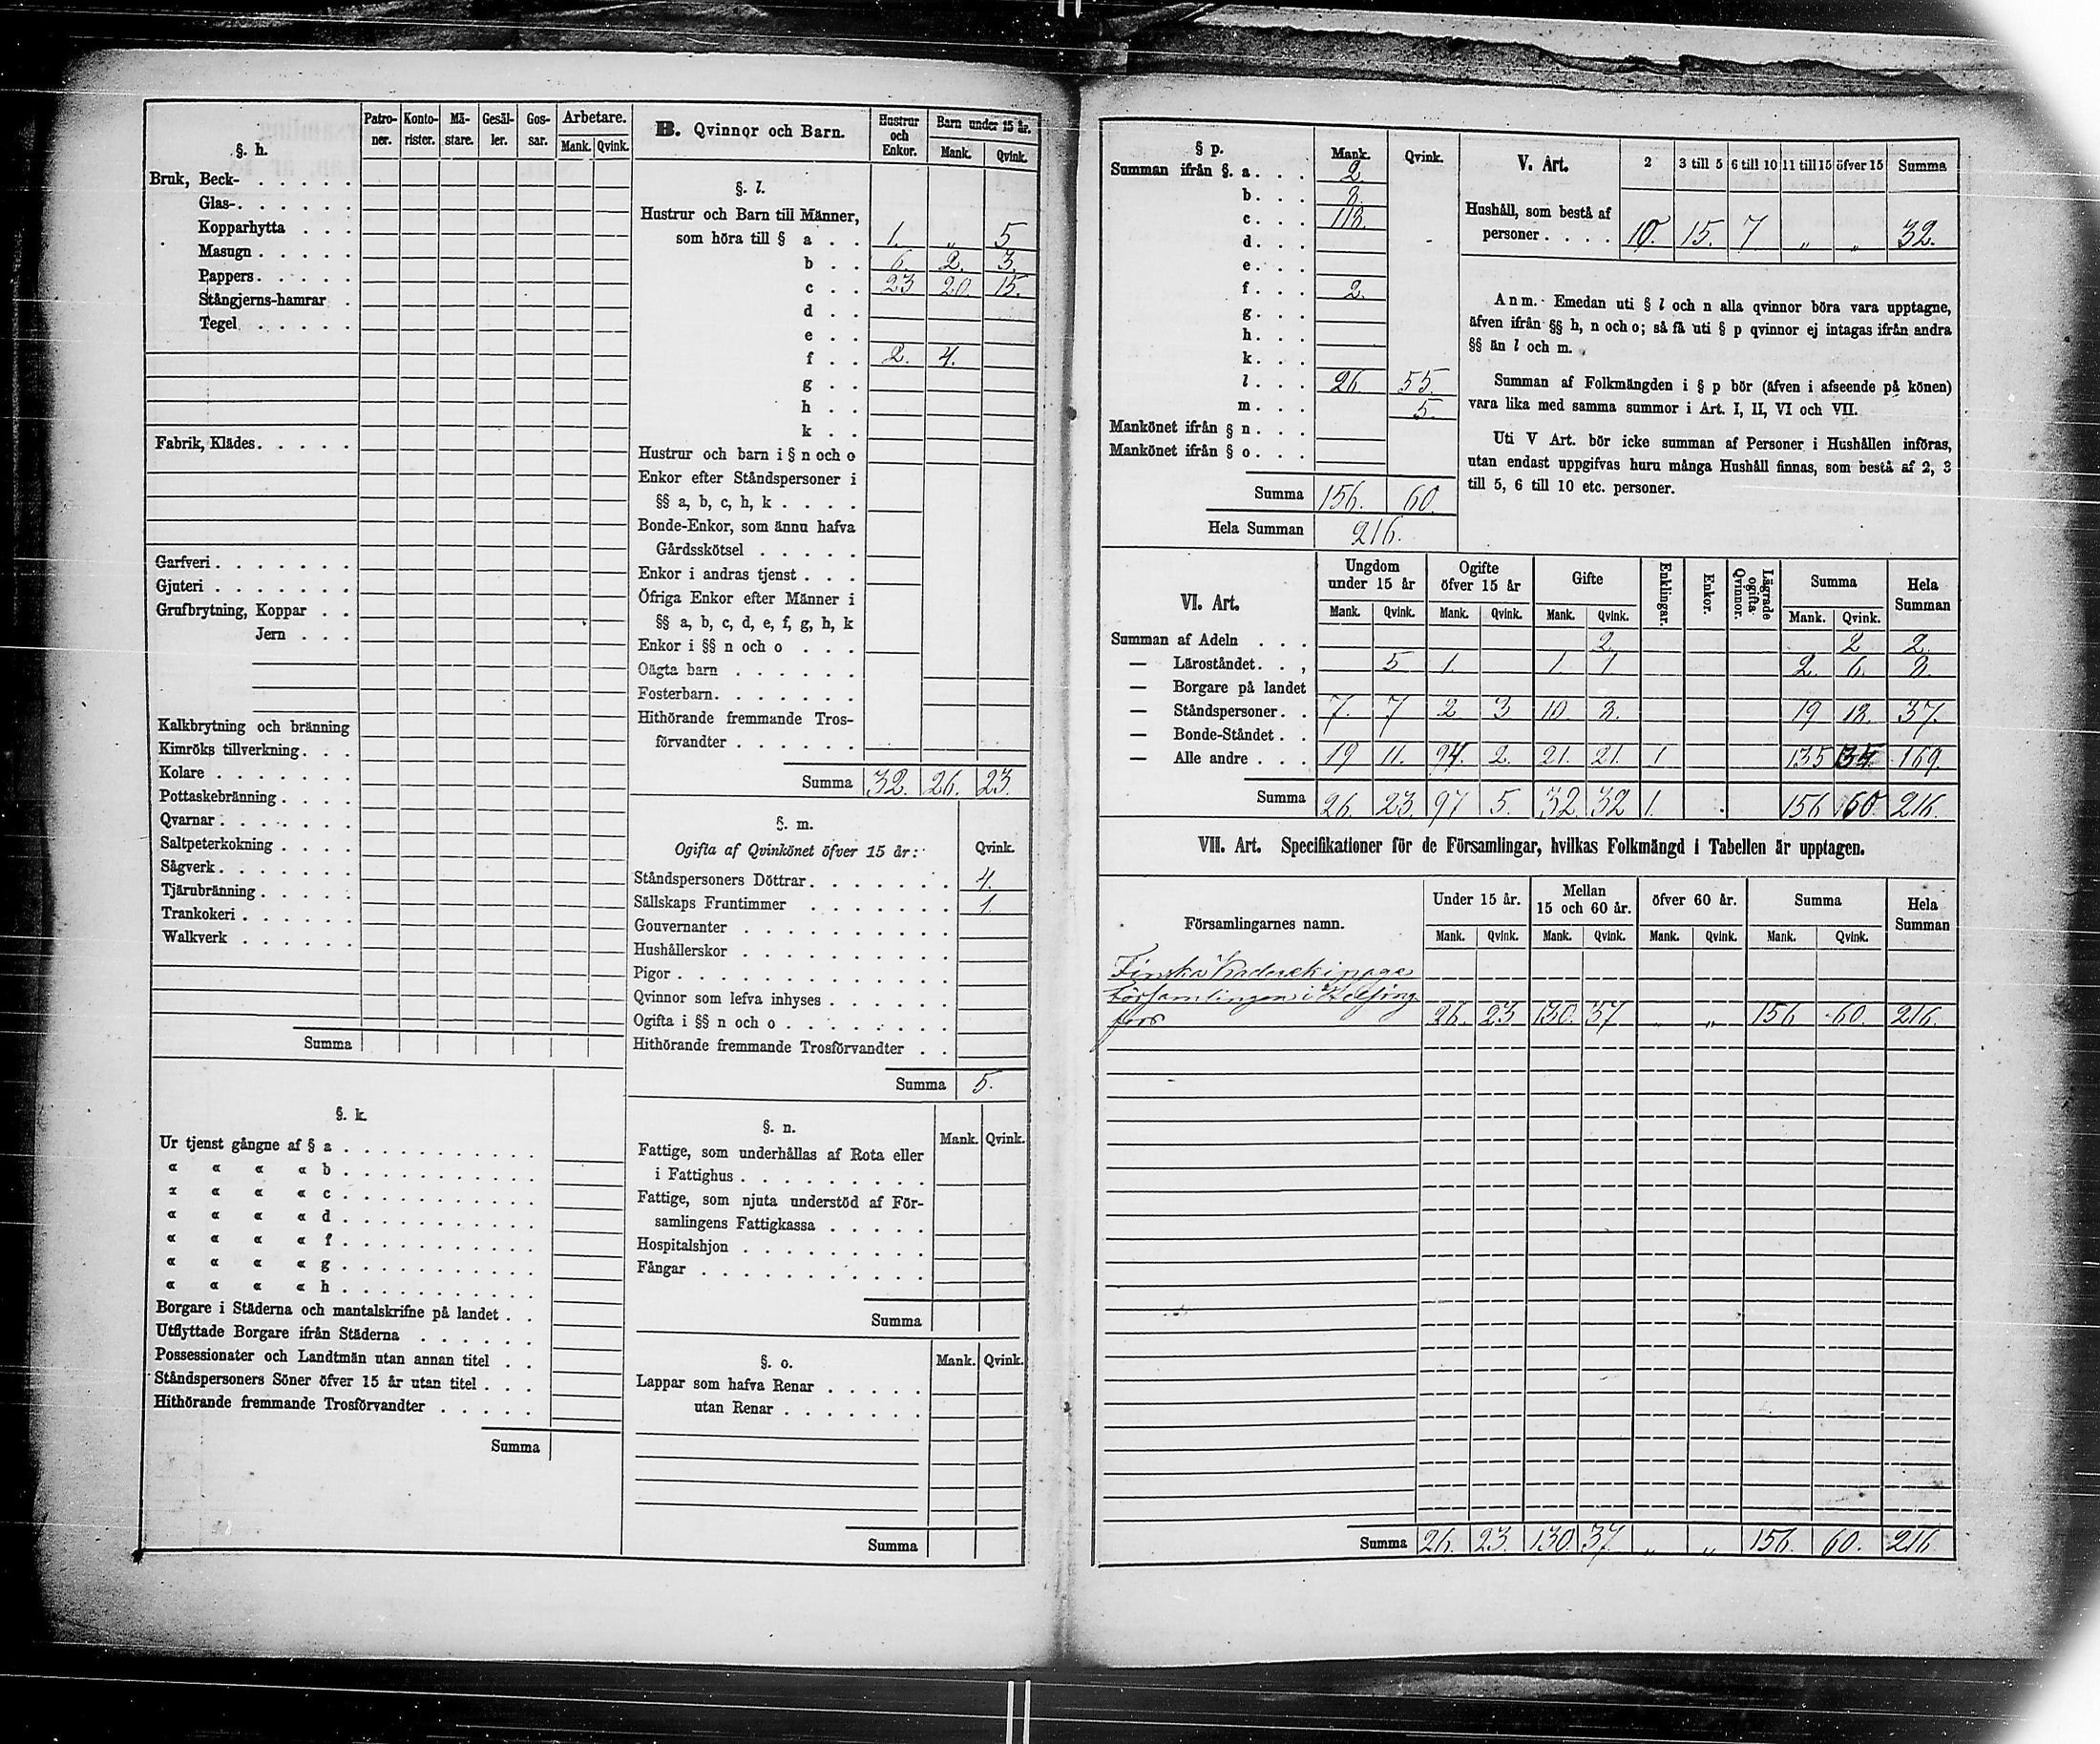 §. h.
Patroner.
Kontorister.
Mästare.
Gesäller.
Gossar.
Arbetare.
Mank. Qvink.
Bruk, Beck-
Glas-
Kopparhytta
Masugn
Pappers
Stångjerns-hamrar
Tegel
Fabrik, Klädes
Garfveri
Gjuteri
Grufbrytning, Koppar
Jern
Kalkbrytning och bränning
Kimröks tillverkning
Kolare
Pottaskebränning
Qvarnar
Saltpeterkokning
Sågverk
Tjärubränning
Trankokeri
Walkverk
Summa
§. k.
Ur tjenst gångne af § a
« « « « b
« « « « c
« « « « d
« « « « f
« « « « g
« « « « h
Borgare i Städerna och mantalskrifne på landet
Utflyttade Borgare ifrån Städerna
Possessionater och Landtmän utan annan titel
Ståndspersoners Söner öfver 15 år utan titel
Hithörande fremmande Trosförvandter
Summa
B. Qvinnor och Barn.
Hustrur och Enkor.
Barn under 15 år.
Mank. Qvink.
§. l.
Hustrur och Barn till Männer,
som höra till § a 1. „ 5
b 6. 2. 3.
c 23 20. 15.
d
e
f 2. 4.
g
h
k
Hustrur och barn i § n och o
Enkor efter Ståndspersoner i
§§ a, b, c, h, k
Bonde-Enkor, som ännu hafva
Gårdsskötsel
Enkor i andras tjenst
Öfriga Enkor efter Männer i
§§ a, b, c, d, e, f, g, h, k
Enkor i §§ n och o
Oägta barn
Fosterbarn
Hithörande fremmande Tros-
förvandter
Summa 32. 26. 23.
§. m.
Ogifta af Qvinkönet öfver 15 år: Qvink.
Ståndspersoners Döttrar 4.
Sällskaps Fruntimmer 1.
Gouvernanter
Hushållerskor
Pigor
Qvinnor som lefva inhyses
Ogifta i §§ n och o
Hithörande fremmande Trosförvandter
Summa 5.
§. n. Mank. Qvink.
Fattige, som underhållas af Rota eller
i Fattighus
Fattige, som njuta understöd af För-
samlingens Fattigkassa
Hospitalshjon
Fångar
Summa
§. o. Mank. Qvink.
Lappar som hafva Renar
utan Renar
Summa
§ p. Mank. Qvink.
Summan ifrån §. a 2.
b 8.
c 118.
d
e
f 2.
g
h
k
l 26 55.
m 5.
Mankönet ifrån § n
Mankönet ifrån § o
Summa 156. 60.
Hela Summan 216.
V. Art. 2 3 till 5 6 till 10 11 till 15 öfver 15 Summa
Hushåll, som bestå af
personer 10. 15. 7 „ „ 32.
Anm. Emedan uti § l och n alla qvinnor böra vara upptagne,
äfven ifrån §§ h, n och o; så få uti § p qvinnor ej intagas ifrån andra
§§ än l och m.
Summan af Folkmängden i § p bör (äfven i afseende på könen)
vara lika med samma summor i Art. I, II, VI och VII.
Uti V Art. bör icke summan af Personer i Hushållen införas,
utan endast uppgifvas huru många Hushåll finnas, som bestå af 2, 3
till 5, 6 till 10 etc. personer.
VI. Art.
Ungdom under 15 år
Ogifte öfver 15 år
Gifte
Enklingar.
Enkor.
Lägrade ogifta Qvinnor.
Summa
Hela Summan
Mank. Qvink. Mank. Qvink. Mank. Qvink. Mank. Qvink.
Summan af Adeln 2. 2 2.
— Läroståndet 5 1. 1. 1. 2. 6. 8.
— Borgare på landet
— Ståndspersoner 7. 7 2 3 10. 8. 19 18. 37.
— Bonde-Ståndet
— Alle andre 19 11. 94. 2. 21. 21. 1 135 34. 169.
Summa 26. 23. 97 5. 32. 32 1. 156 60. 216.
VII. Art. Specifikationer för de Församlingar, hvilkas Folkmängd i Tabellen är upptagen.
Församlingarnes namn.
Under 15 år.
Mellan 15 och 60 år.
öfver 60 år.
Summa
Hela Summan
Mank. Qvink. Mank. Qvink. Mank. Qvink. Mank. Qvink.
Finska
församlingen i Helsing
fors 26. 23 130. 37 „ „ 156 60. 216.
Summa 26. 23. 130 37 „ „ 156. 60. 216